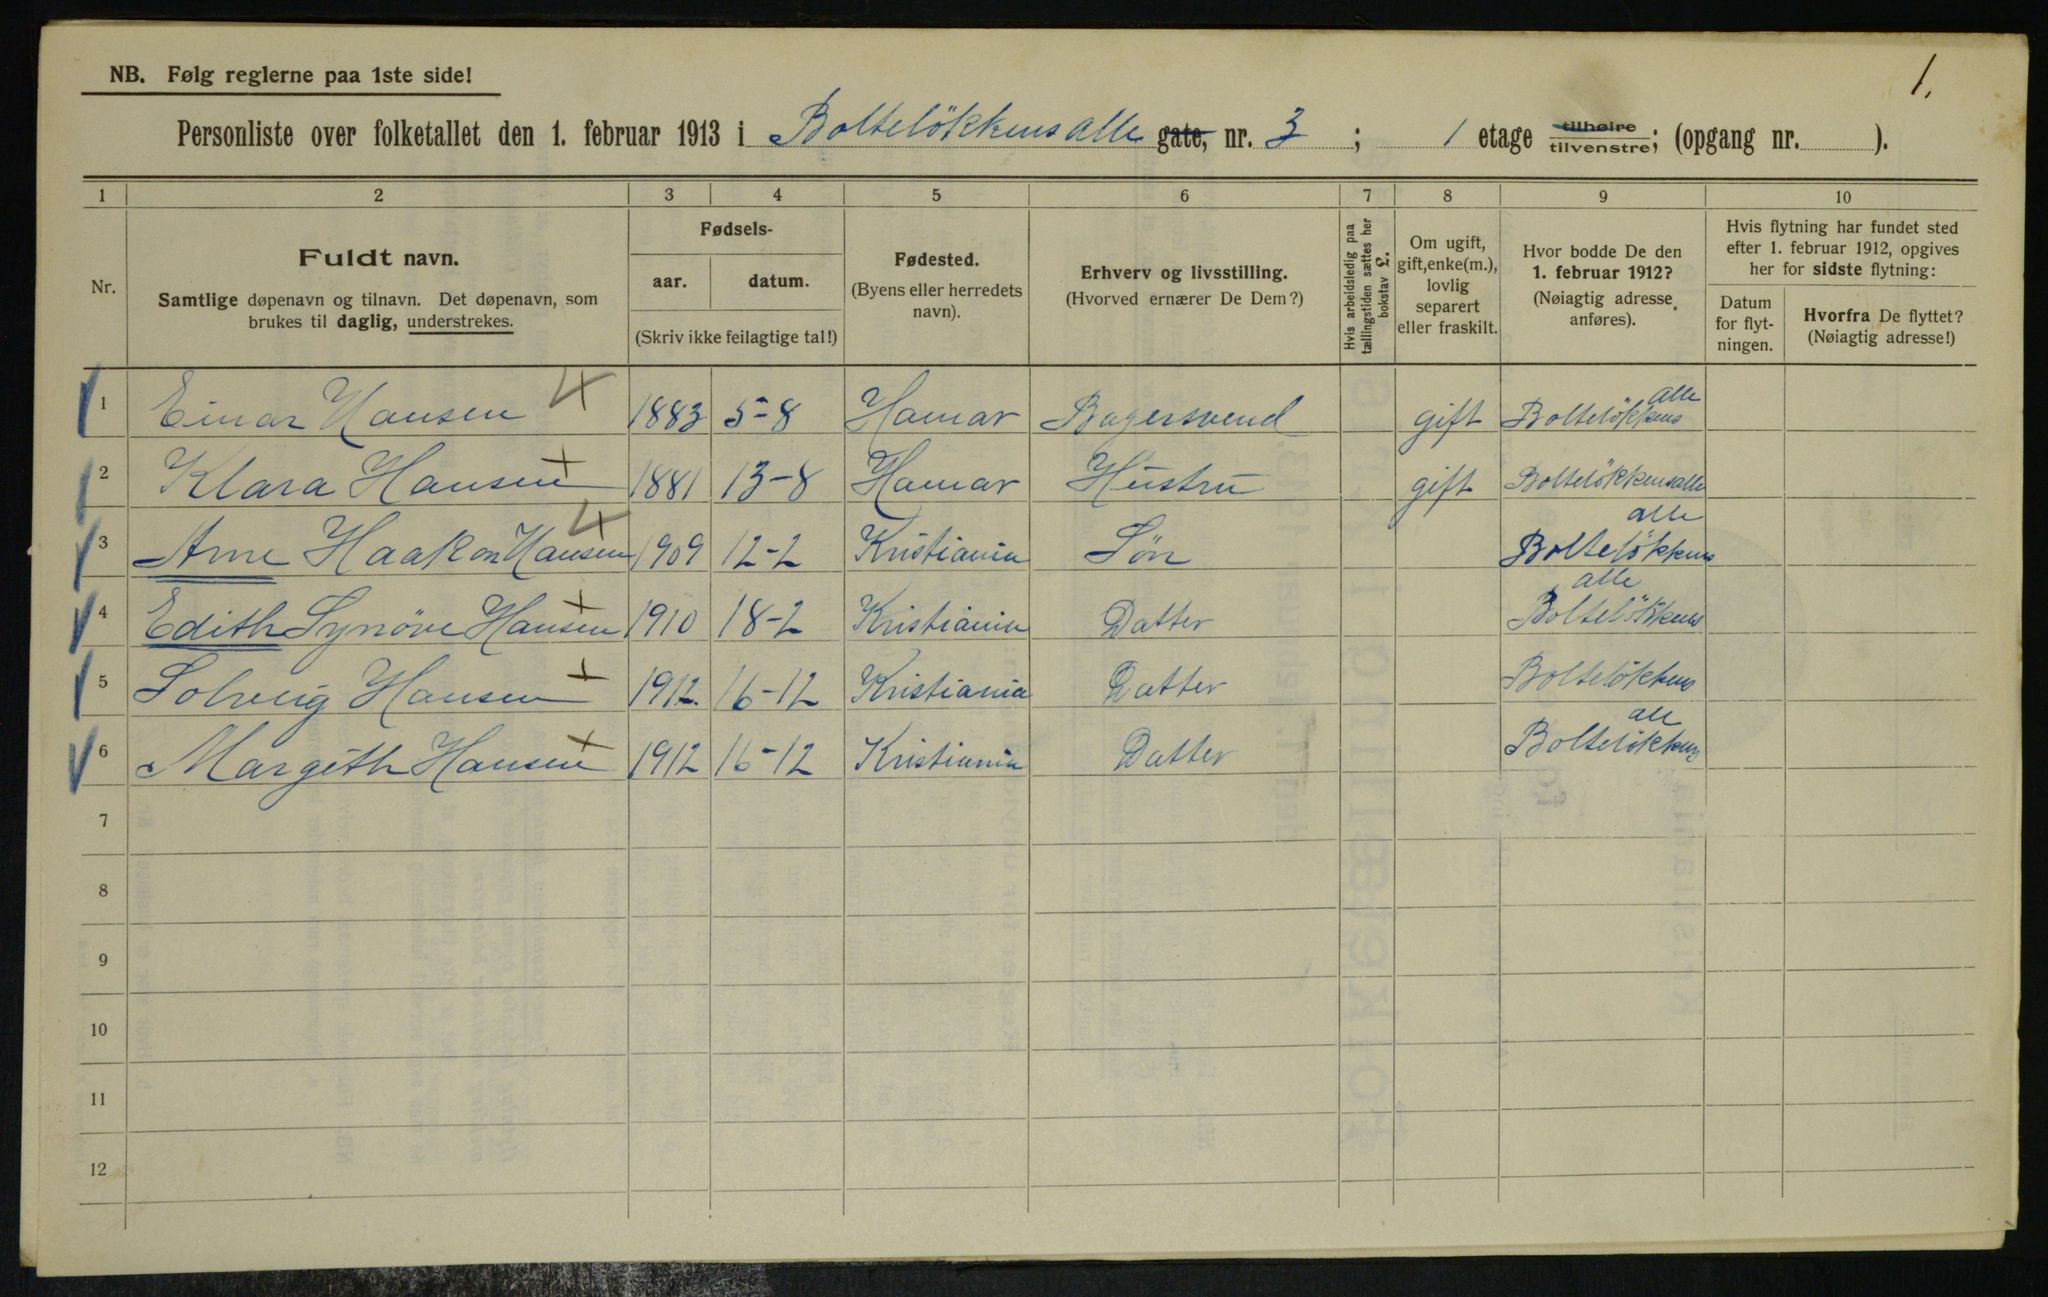 NB. Følg reglerne paa 1ste side!
1.
Personliste over folketallet den 1. februar 1913 i Bolteløkkens alle gate, nr. 3 ; 1 etage tilhøire tilvenstre; (opgang nr. ).
1 2 3 4 5 6 7 8 9 10
Nr.
Fuldt navn.
Samtlige døpenavn og tilnavn. Det døpenavn, som
brukes til daglig, understrekes.
Fødsels-
aar. datum.
(Skriv ikke feilagtige tal!)
Fødested.
(Byens eller herredets
navn).
Erhverv og livsstilling.
(Hvorved ernærer De Dem?)
Hvis arbeidsledig paa
tællingstiden sættes her
bokstav L.
Om ugift,
gift, enke(m.),
lovlig
separert
eller fraskilt.
Hvor bodde De den
1. februar 1912?
(Nøiagtig adresse
anføres).
Hvis flytning har fundet sted
efter 1. februar 1912, opgives
her for sidste flytning:
Datum
for flyt-
ningen.
Hvorfra De flyttet?
(Nøiagtig adresse!)
1 Einar Hansen 4 1883 5-8 Hamar Bagersvend gift Boltelökkens alle
2 Klara Hansen + 1881 13-8 Hamar Hustru gift Boltelökkensalle
3 Arne Haakon Hansen 4 1909 12-2 Kristiania Sön Boltelökkens alle
4 Edith Synöve Hansen + 1910 18-2 Kristiania Datter Boltelökkens alle
5 Solveig Hansen + 1912. 16-12 Kristiania Datter Boltelökkens
6 Margith Hansen + 1912 16-12 Kristiania Datter Boltelökkens alle
7
8
9
10
11
12